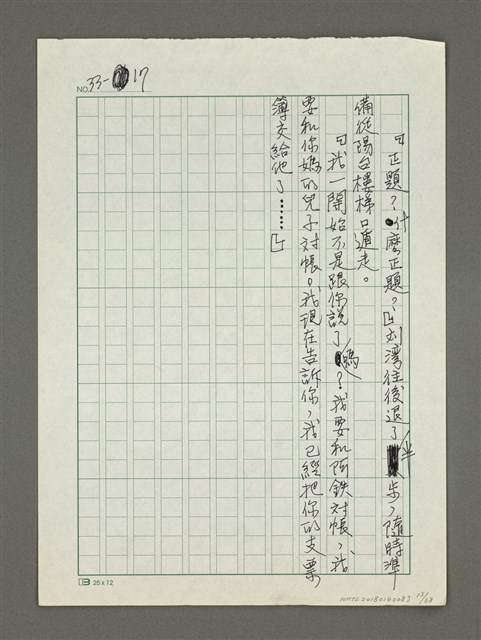 NO. 33-17
『正題？什麼正題？』刘湾往後退了半步，隨時準
備從陽台樓梯口遁走。
『我一開始不是跟你說了嗎？我要和阿鉄对帳，我
要和你媽的兒子对帳。我現在告訴你，我已經把你的支票
簿交給他了……』
25x12
13/28